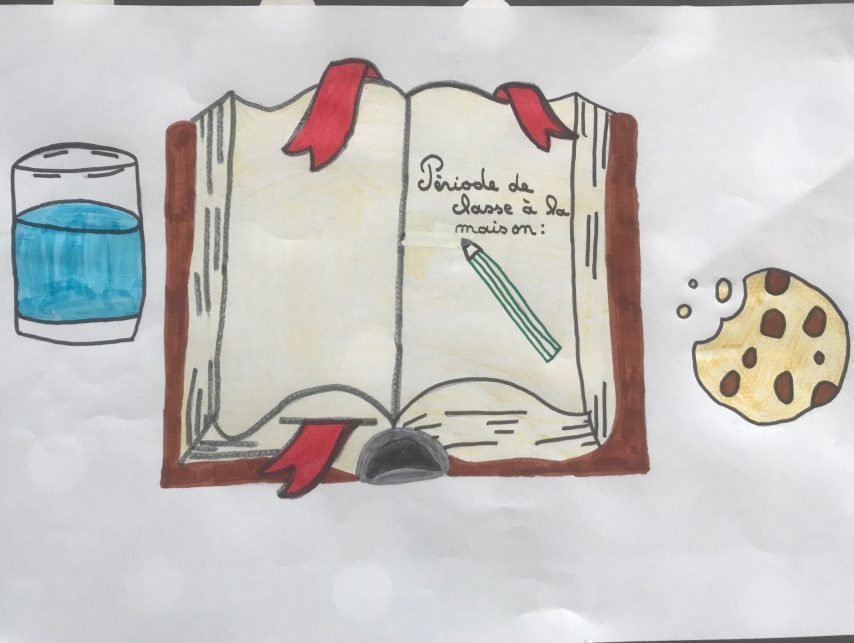 Période de
classe à la
maison: